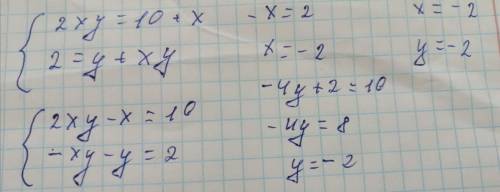 2xy = 10 + x
2 = y + xy
2xy - x = 10
- xy - y = 2
- x = 2
x = - 2
- 4y + 2 = 10
- 4y = 8
y = - 2
x = - 2
y = - 2